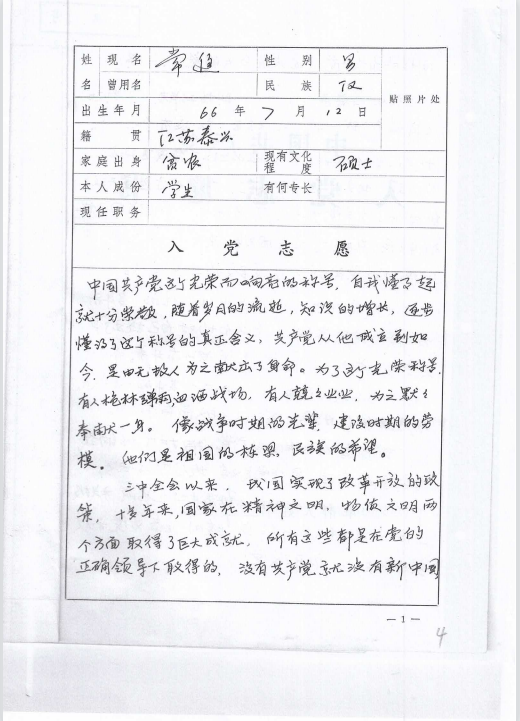 姓 现 名 常 性 别 男
名 曾用名 民 族 汉 贴照片处
出生年月 66 年 7 月 12 日
籍 贯 江苏泰兴
家庭出身 贫农 现有文化程度 硕士
本人成份 学生 有何专长
现任职务
入 党 志 愿
中国共产党这个光荣而响亮的称号，自我懂事起
就十分崇敬，随着岁月的流逝，知识的增长，逐步
懂得了这个称号的真正含义，共产党从他成立到如
今，是由无数人为之献出了身命。为了这个光荣称号，
有人枪林弹雨血洒战场，有人兢兢业业，为之默默
奉献一身。像战争时期的先辈，建设时期的劳
模。他们是祖国的栋梁，民族的希望。
三中全会以来，我国实现了改革开放的政
策，十多年来，国家在精神文明，物质文明两
个方面取得了巨大成就，所有这些都是在党的
正确领导下取得的，没有共产党就没有新中国
— 1 —
4